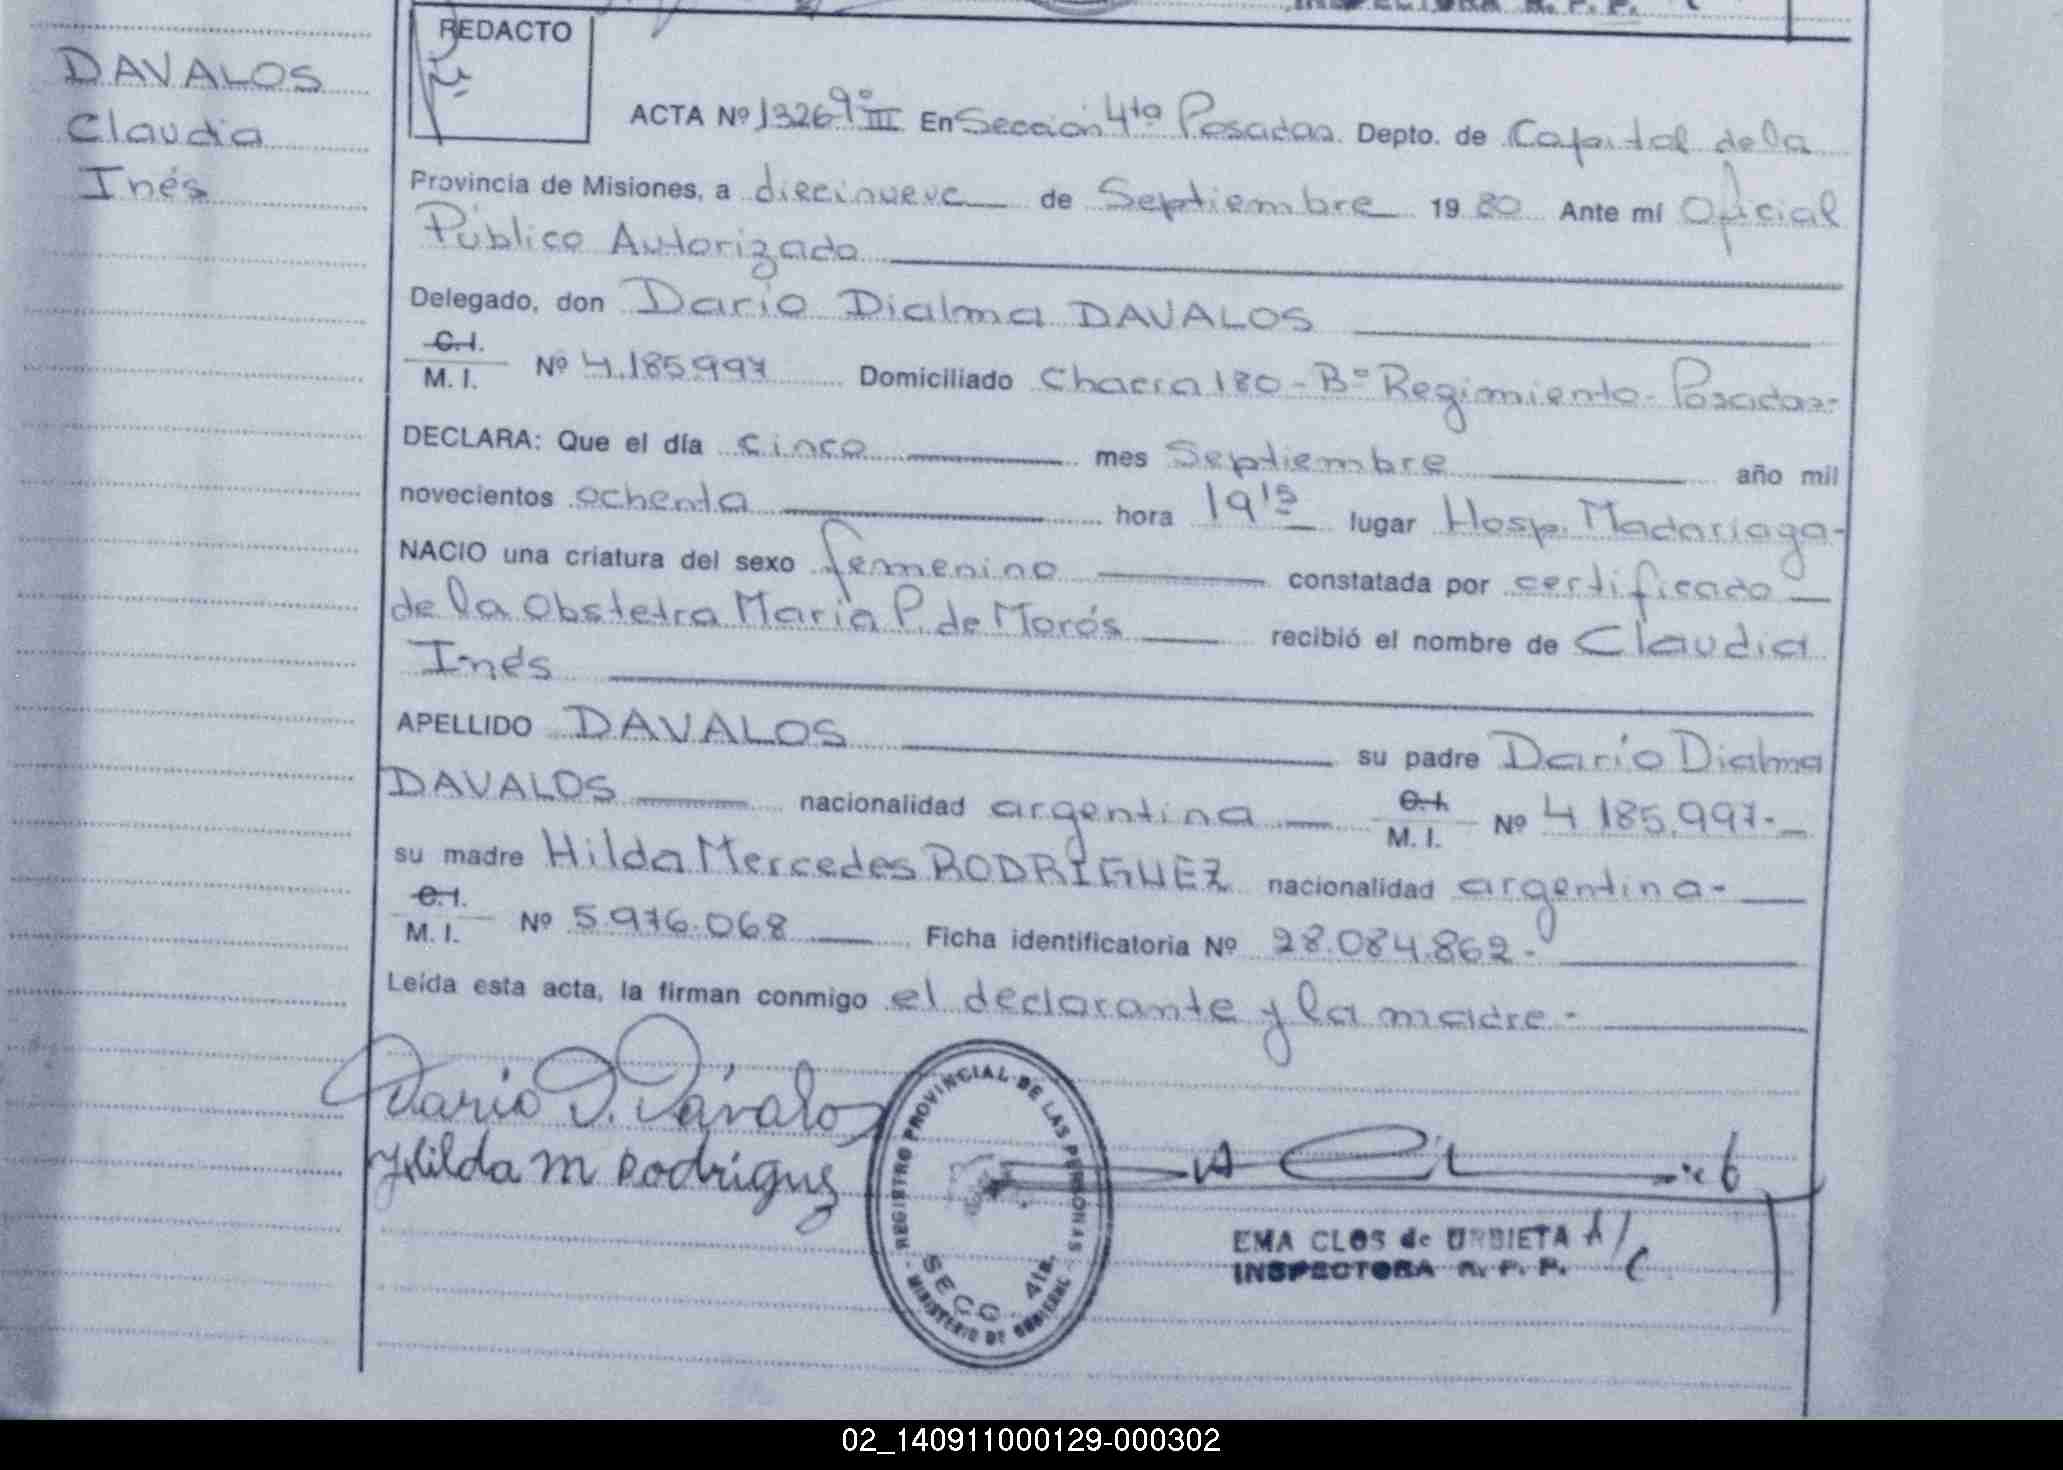 DAVALOS
Claudia
Inés
REDACTO
ACTA Nº 1326 Tº III En Sección 4ta Posadas Depto. de Capital de la
Provincia de Misiones, a diecinueve de Septiembre 19 80 Ante mí Oficial
Público Autorizado
Delegado, don Dario Dialma DAVALOS
C.I.
M. I. Nº 4.185.997 Domiciliado Chacra 180 - Bº Regimiento - Posadas-
DECLARA: Que el día cinco mes Septiembre año mil
novecientos ochenta hora 19 15 lugar Hosp. Madariaga-
NACIO una criatura del sexo femenino constatada por certificado
de la Obstetra María P. de Morós recibió el nombre de Claudia
Inés
APELLIDO DAVALOS su padre Darío Dialma
DAVALOS nacionalidad argentina C.I. M. I. Nº 4.185.997.-
su madre Hilda Mercedes RODRIGUEZ nacionalidad argentina-
C.I.
M. I. Nº 5.976.068 Ficha identificatoria Nº 28.084.862-
Leída esta acta, la firman conmigo el declarante y la madre-
Dario D. Dávalos
Hilda M Rodriguz
REGISTRO PROVINCIAL DE LAS PERSONAS
SECC. 4ta.
MINISTERIO DE GOBIERNO
EMA CLOS de URBIETA A/C
INSPECTORA R. P. P.
02_140911000129-000302